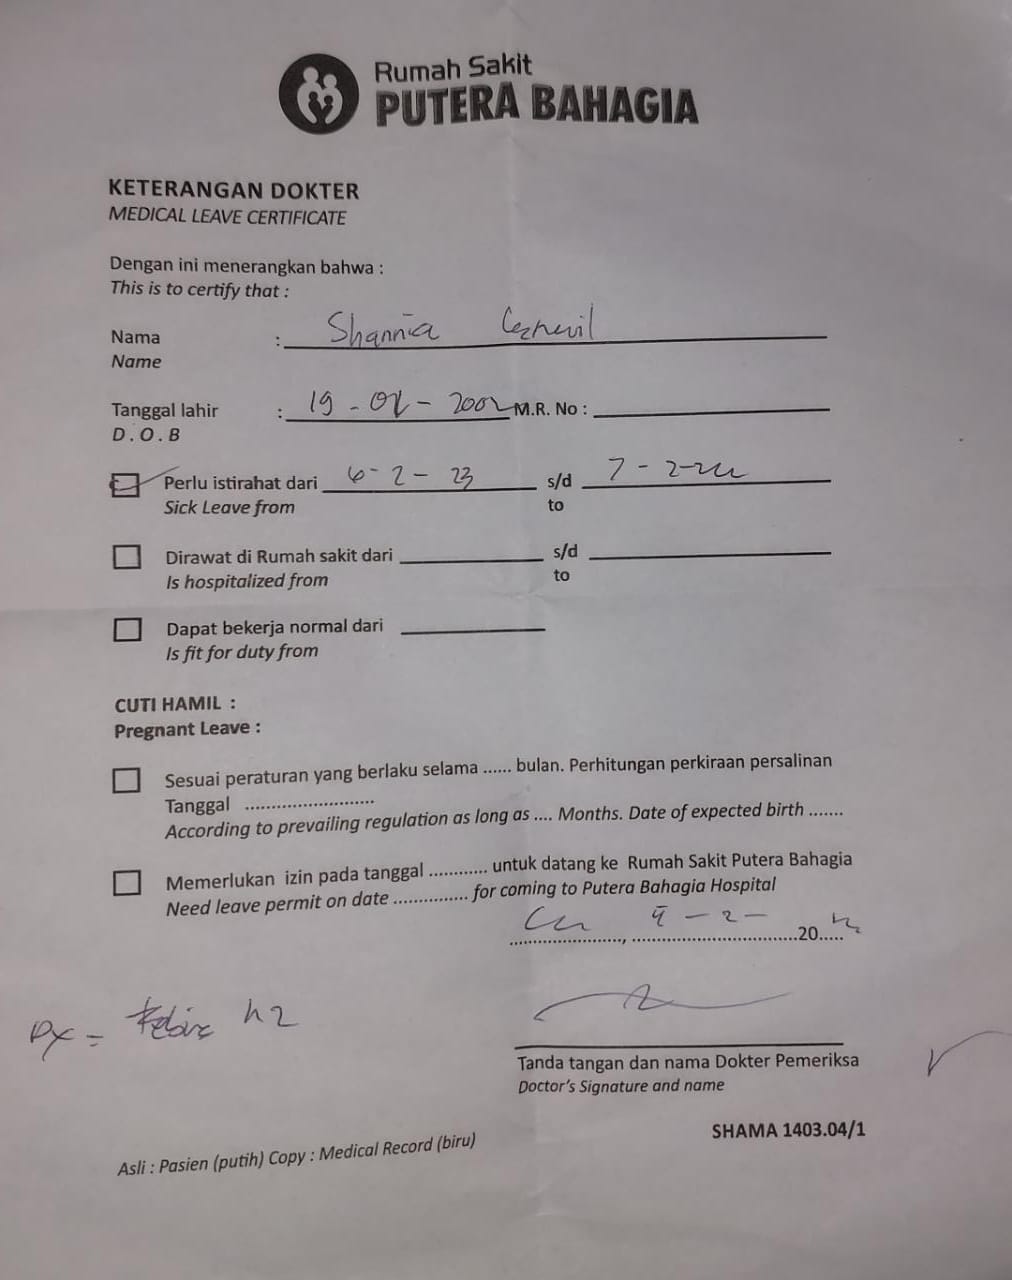 Rumah Sakit
PUTERA BAHAGIA
KETERANGAN DOKTER
MEDICAL LEAVE CERTIFICATE
Dengan ini menerangkan bahwa :
This is to certify that :
Nama : Shannia
Name
Tanggal lahir : 19 - 02 - 2002 M.R. No :
D . O . B
Perlu istirahat dari 6 - 2 - 23 s/d 7 - 2 -
Sick Leave from to
Dirawat di Rumah sakit dari s/d
Is hospitalized from to
Dapat bekerja normal dari
Is fit for duty from
CUTI HAMIL :
Pregnant Leave :
Sesuai peraturan yang berlaku selama ...... bulan. Perhitungan perkiraan persalinan
Tanggal .........................
According to prevailing regulation as long as .... Months. Date of expected birth .......
Memerlukan izin pada tanggal ............ untuk datang ke Rumah Sakit Putera Bahagia
Need leave permit on date ............... for coming to Putera Bahagia Hospital
- 2 - 20.....
Tanda tangan dan nama Dokter Pemeriksa
Doctor's Signature and name
SHAMA 1403.04/1
Asli : Pasien (putih) Copy : Medical Record (biru)